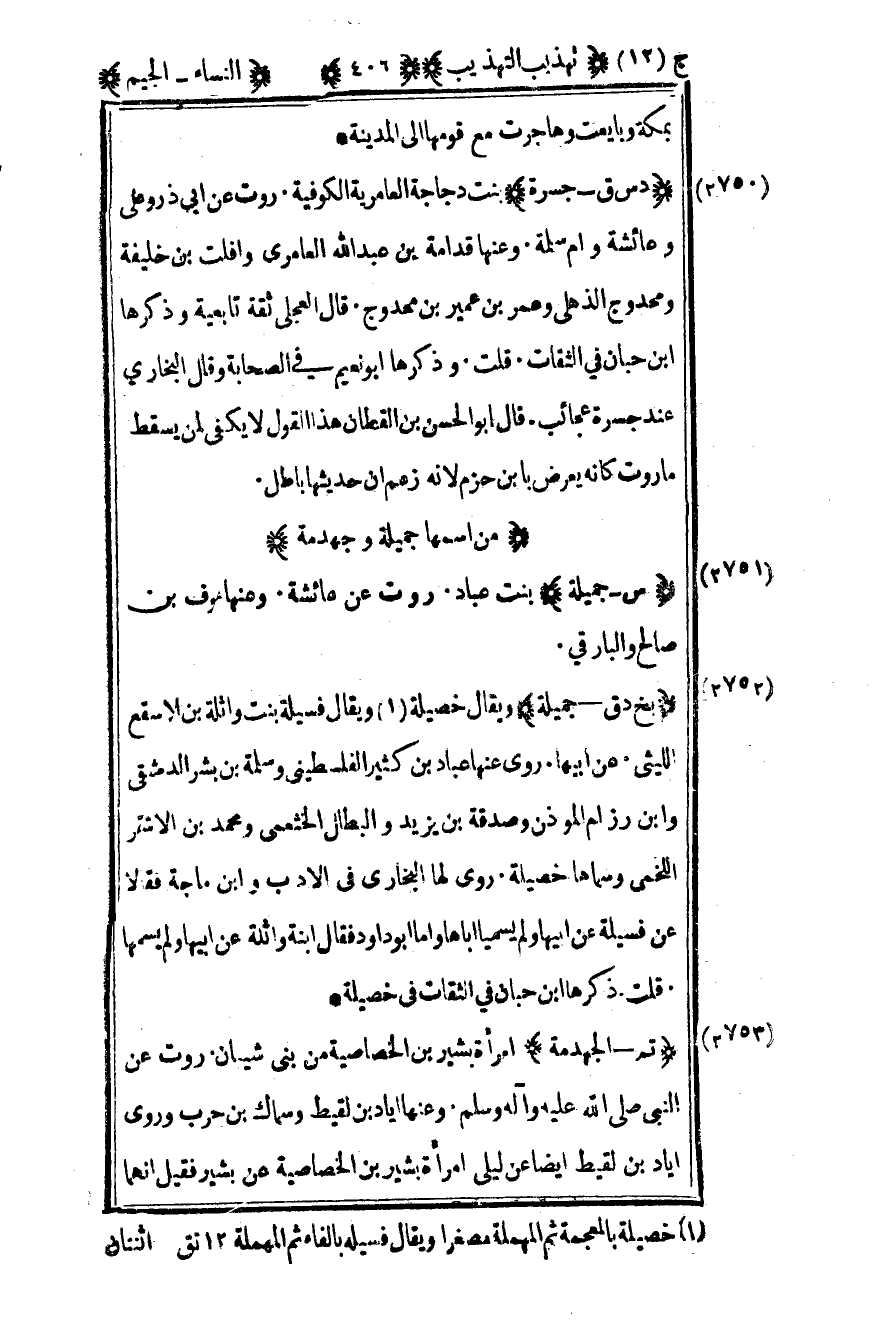 ج (١٢) ﴿ تهذيب التهذيب ﴾ ﴿ ٤٠٦ ﴾ ﴿ النساء ـ الجيم ﴾
بمكة وبايعت وهاجرت مع قومها الى المدينة •
(٢٧٥٠) ﴿ دس ق ــ جسرة ﴾ بنت دجاجة العامرية الكوفية · روت عن ابي ذر وعلى
و عائشة و ام سلمة · وعنها قدامة بن عبدالله العامرى وافلت بن خليفة
ومحدوج الذهلى وعمر بن عمير بن محدوج · قال العجلى ثقة تابعية و ذكرها
ابن حبان في الثقات · قلت · و ذكرها ابونعيم في الصحابة وقال البخاري
عند جسرة عجائب · قال ابوالحسن بن القطان هذا القول لا يكفى لمن يسقط
ماروت كانه يعرض بابن حزم لانه زعم ان حديثها باطل ·
﴿ من اسمها جميلة و جهدمة ﴾
(٢٧٥١) ﴿ س ـ جميلة ﴾ بنت عباد · روت عن عائشة · وعنها عوف بن
صالح والبارقي ·
(٢٧٥٢) ﴿ بخ دق ــ جميلة ﴾ ويقال خصيلة (١) ويقال فسيلة بنت واثلة بن الاسقع
الليثى · عن ابيها · روى عنها عباد بن كثير الفلسطينى وسلمة بن بشر الدمشقى
وابن رزام الموذن وصدقة بن يزيد و البطال الخثعمى ومحمد بن الاشتر
اللخمى وسماها خصيلة · روى لها البخارى فى الادب و ابن ماجة فقالا
عن فسيلة عن ابيها ولم يسميا اباها واما ابوداود فقال ابنة واثلة عن ابيها ولم يسمها
· قلت · ذكرها ابن حبان في الثقات فى خصيلة •
(٢٧٥٣) ﴿ تم ــ الجهدمة ﴾ امرأة بشير بن الخصاصية من بنى شيبان · روت عن
النبى صلى الله عليه وآله وسلم · وعنها اياد بن لقيط وسماك بن حرب وروى
اياد بن لقيط ايضا عن ليلى امرأة بشير بن الخصاصية عن بشير فقيل انهما
(١) خصيلة بالمعجمة ثم المهملة مصغرا ويقال فسيله بالفاء ثم المهملة ١٢ تق اثنتان